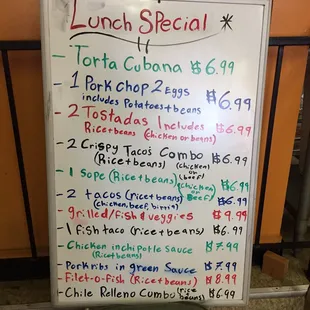 Lunch Special *
- Torta Cubana $6.99
- 1 Pork Chop 2 Eggs
includes Potatoes + beans $6.99
- 2 Tostadas Includes
Rice + beans (chicken or beans) $6.99
- 2 Crispy Tacos Combo
(Rice + beans) (chicken) or (beef) $6.99
- 1 Sope (Rice + beans) (chicken or Beef) $6.99
- 2 tacos (rice + beans)
(chicken, beef, birria) $6.99
- grilled/fish & veggies $9.99
- 1 fish taco (rice + beans) $6.99
- Chicken in chipotle Sauce $7.99
(Rice + beans)
- Pork ribs in green Sauce $7.99
- Filet-o-Fish (Rice + beans) $8.99
- Chile Relleno Cumbo (rice beans) $6.99